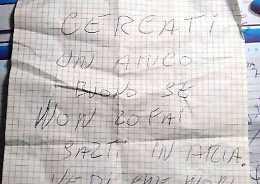 CERCATI
UN AMICO
BUONO SE
NON LO FAI
SALTI IN ARIA.
VEDI CHE NON